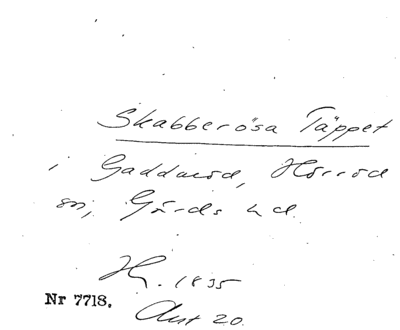 Skabberösa Täppet
i Gaddaröd, Hörröd
sn, Gärds hd.
Hg. 1835
Nr 7718. Akt 20.